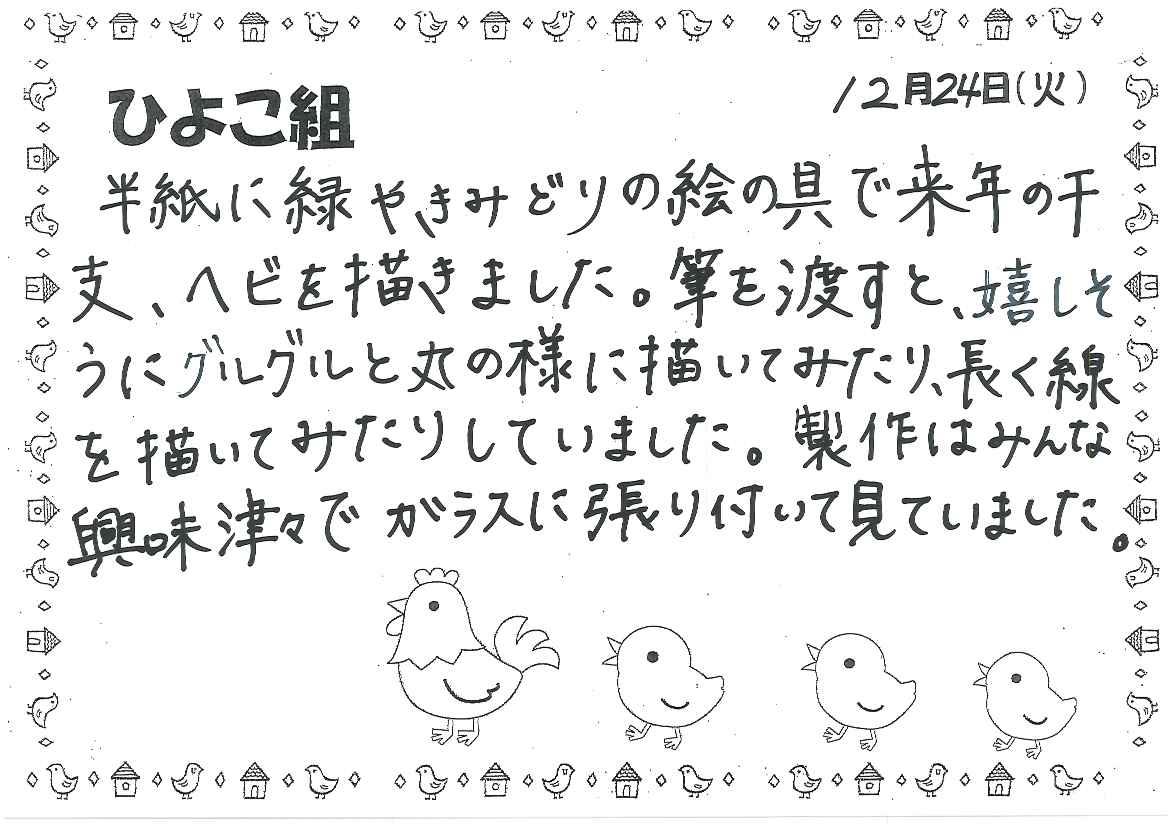 ひよこ組
12月24日(火)
半紙に緑やきみどりの絵の具で来年の干
支、ヘビを描きました。筆を渡すと、嬉しそ
うにグルグルと丸の様に描いてみたり、長く線
を描いてみたりしていました。製作はみんな
興味津々でガラスに張り付いて見ていました。